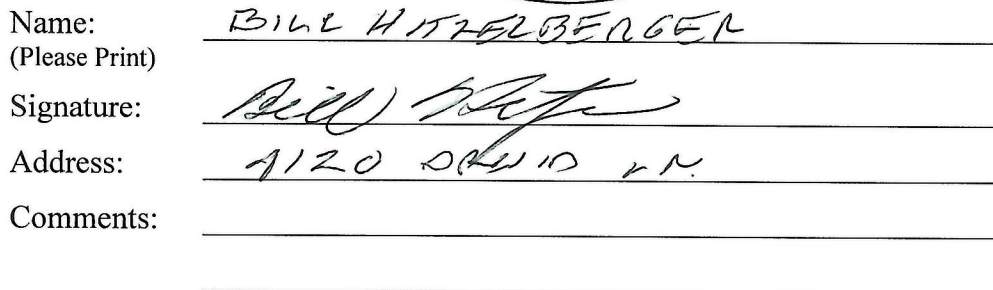 Name: BILL HITZELBERGER
(Please Print)
Signature: Bill
Address: 4120 DRUID LN.
Comments: